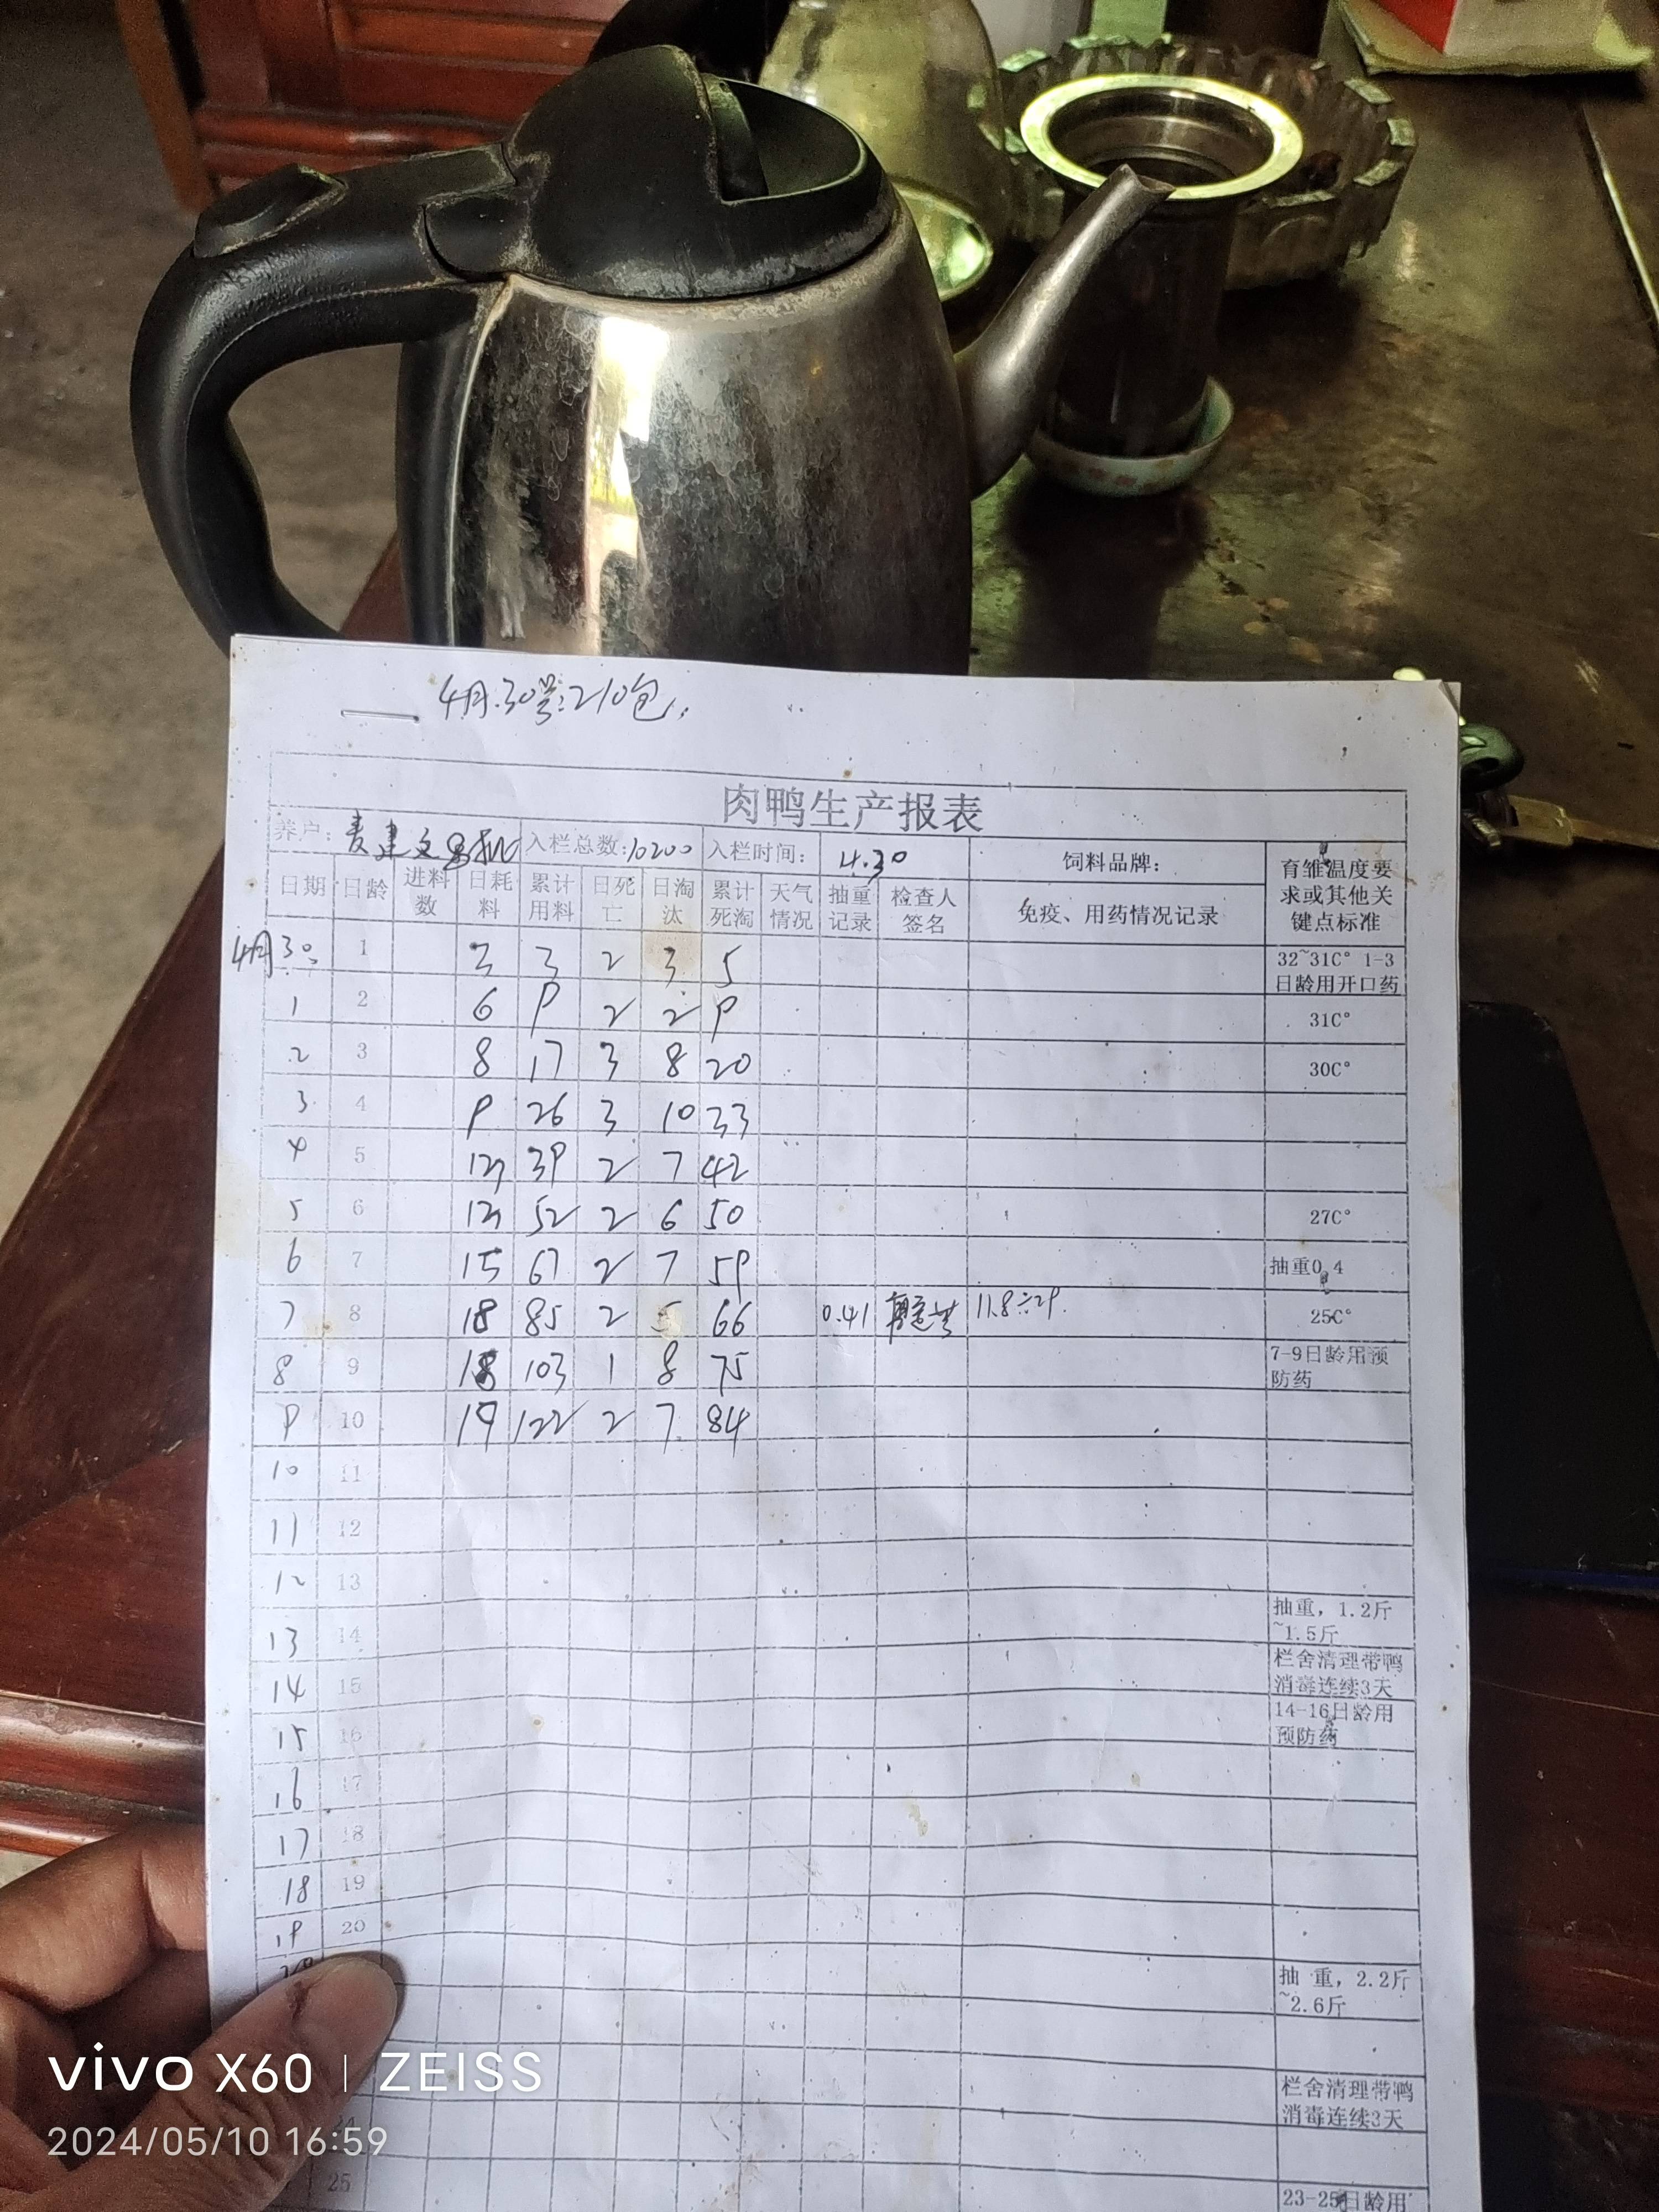 4月.30号:210包.
肉鸭生产报表
养户: 麦建文 入栏总数:10200 入栏时间: 4.30 饲料品牌: 育雏温度要求或其他关键点标准
日期 日龄 进料数 日耗料 累计用料 日死亡 日淘汰 累计死淘 天气情况 抽重记录 检查人签名 免疫、用药情况记录
4月30 1 3 3 2 3 5 32~31C° 1-3日龄用开口药
1 2 6 9 2 2 9 31C°
2 3 8 17 3 8 20 30C°
3 4 9 26 3 10 33
4 5 39 2 7 42
5 6 52 2 6 50 27C°
6 7 15 67 2 7 59 抽重0.4
7 8 18 85 2 5 66 0.41 25C°
8 9 18 103 1 8 75 7-9日龄用预防药
9 10 19 122 2 7 84
10 11
11 12
12 13
13 14 抽重，1.2斤~1.5斤
14 15 栏舍清理带鸭消毒连续3天
15 16 14-16日龄用预防药
16 17
17 18
18 19
19 20
抽 重，2.2斤~2.6斤
栏舍清理带鸭消毒连续3天
24
25 23-25日龄用
vivo X60 | ZEISS
2024/05/10 16:59